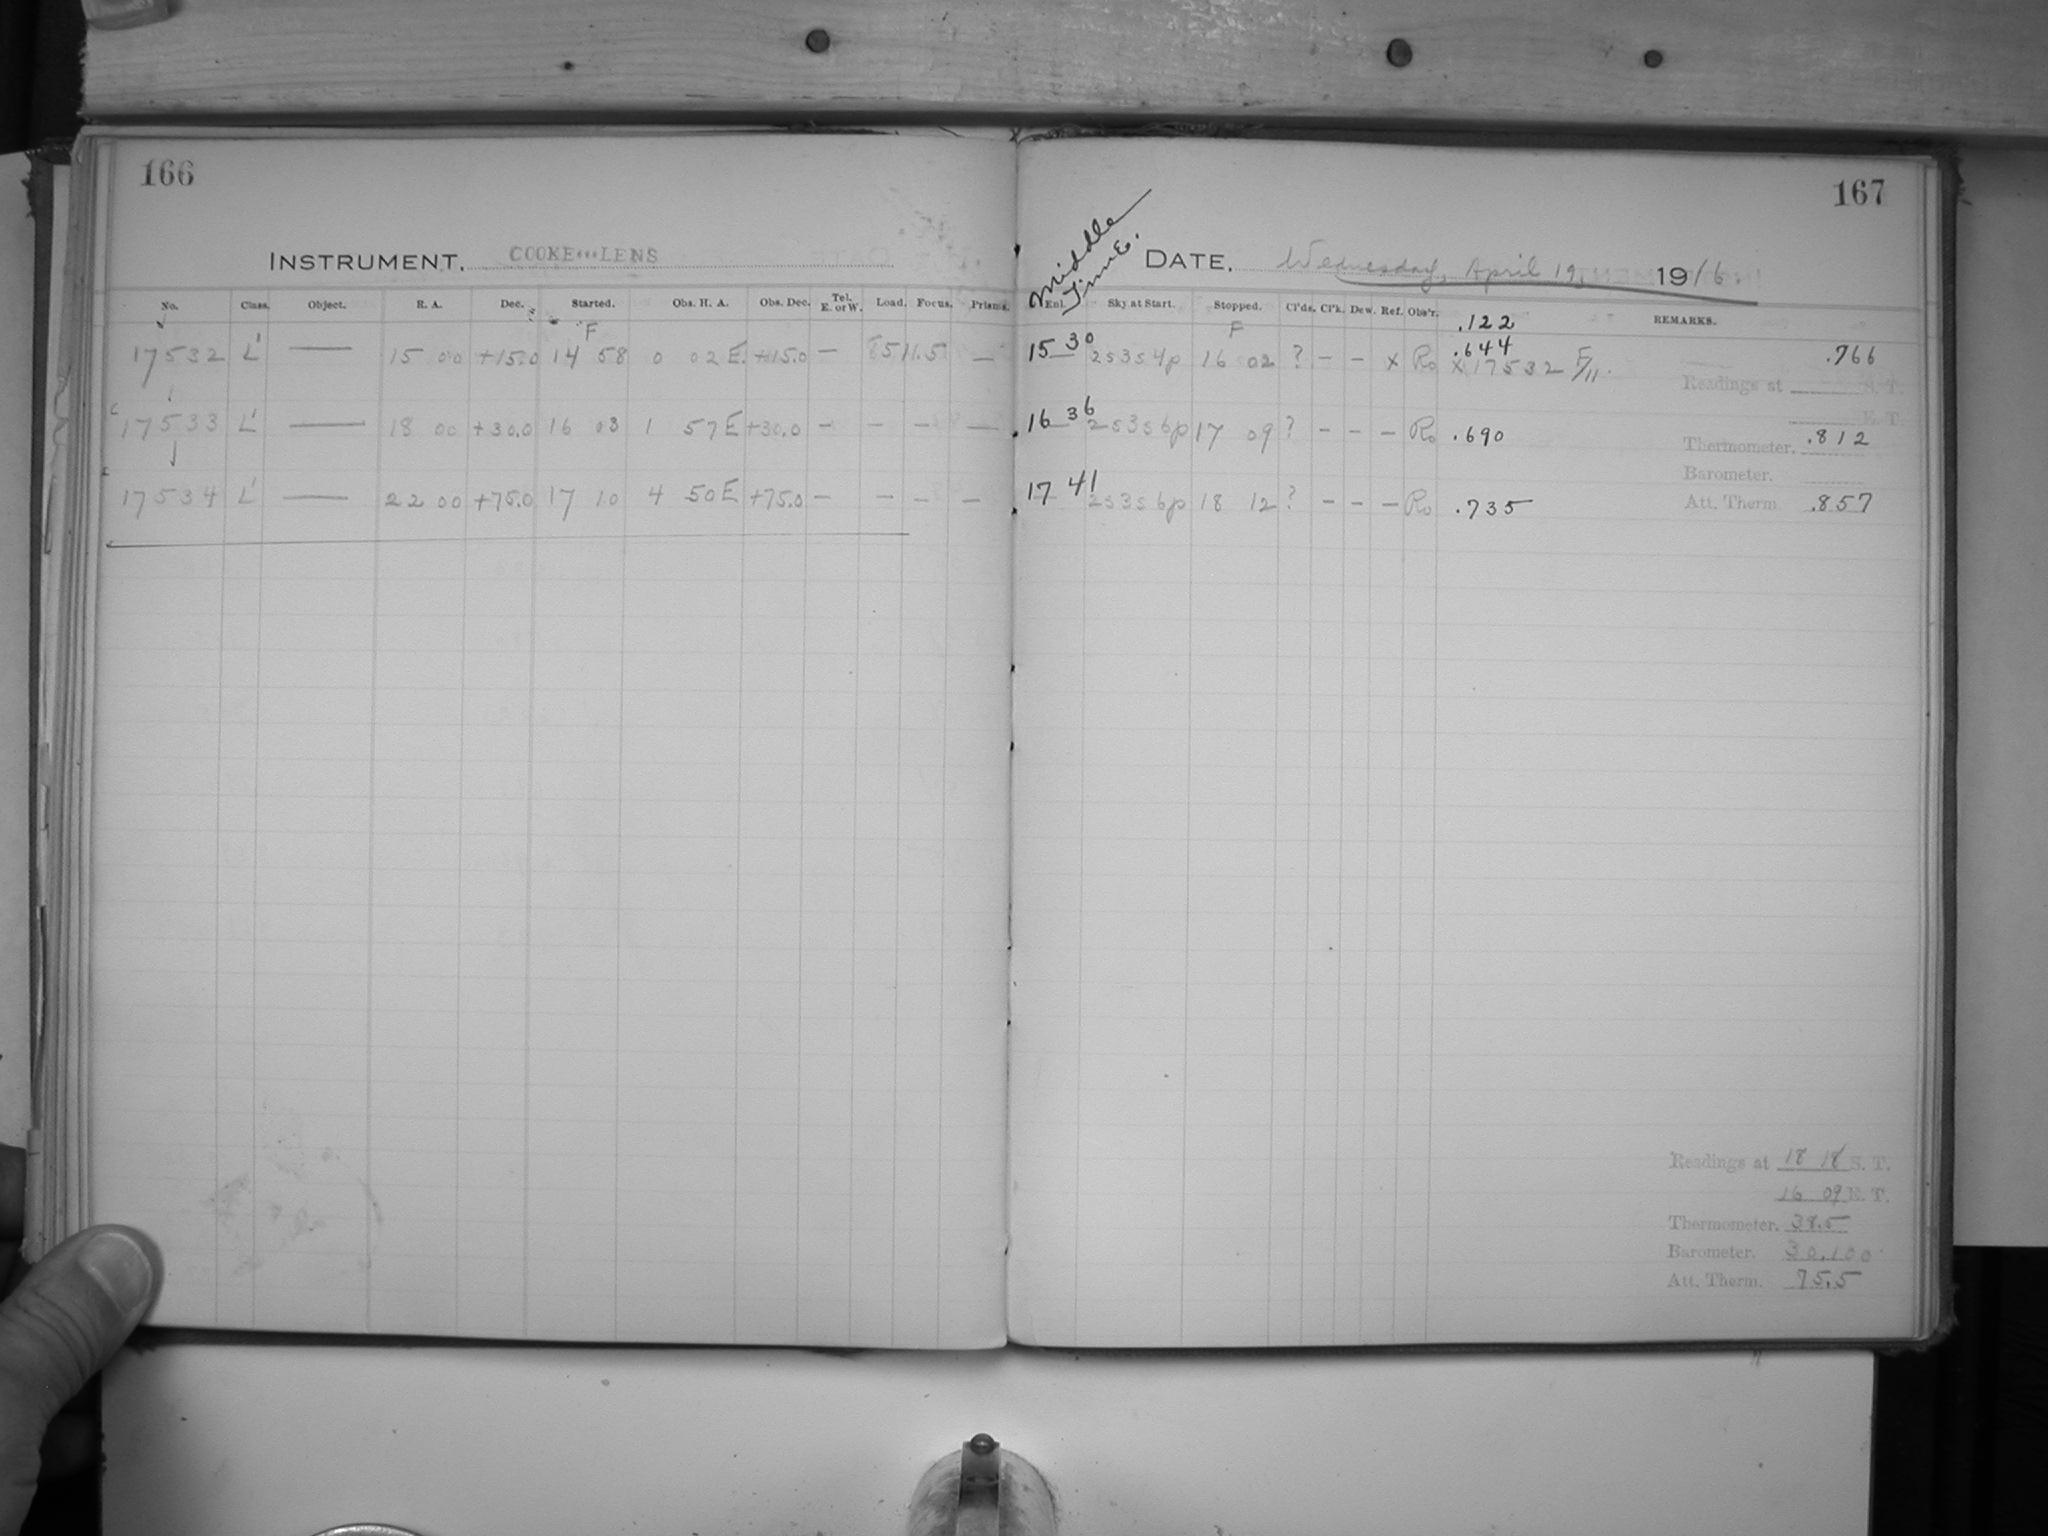 166
INSTRUMENT. COOKE LENS
No. Class. Object. R. A. Dec. Started. Obs. H. A. Obs. Dec. Tel. E. or W. Load. Focus. Prisms.
F
17532 L' — 15 00 +15.0 14 58 0 02 E. +15.0 — 85 11.5 —
17533 L' — 18 00 +30.0 16 03 1 57 E +30.0 — — — —
17534 L' — 22 00 +75.0 17 10 4 50 E +75.0 — — — —
167
Middle Time.
DATE. Wednesday, April 19, 1916.
Enl. Sky at Start. Stopped. Cl'ds. Cl'k. Dew. Ref. Obs'r. REMARKS.
.122
F
.644
15 30 2s3s4p 16 02 ? — — x Ro x 17532 F/11. .766
Readings at S. T.
E. T.
16 36 2s3s6p 17 09 ? — — — Ro .690
Thermometer. .812
Barometer.
17 41 2s3s6p 18 12 ? — — — Ro .735
Att. Therm. .857
Readings at 18 18 S. T.
16 09 E. T.
Thermometer. 38.5
Barometer. 30.100
Att. Therm. 75.5